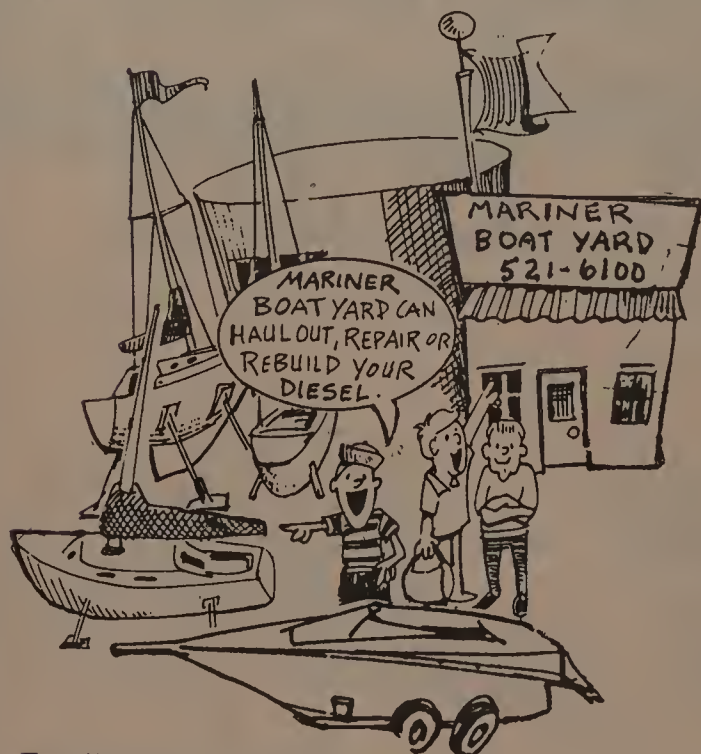 MARINER
BOAT YARD
521-6100
MARINER
BOAT YARD CAN
HAUL OUT, REPAIR OR
REBUILD YOUR
DIESEL.